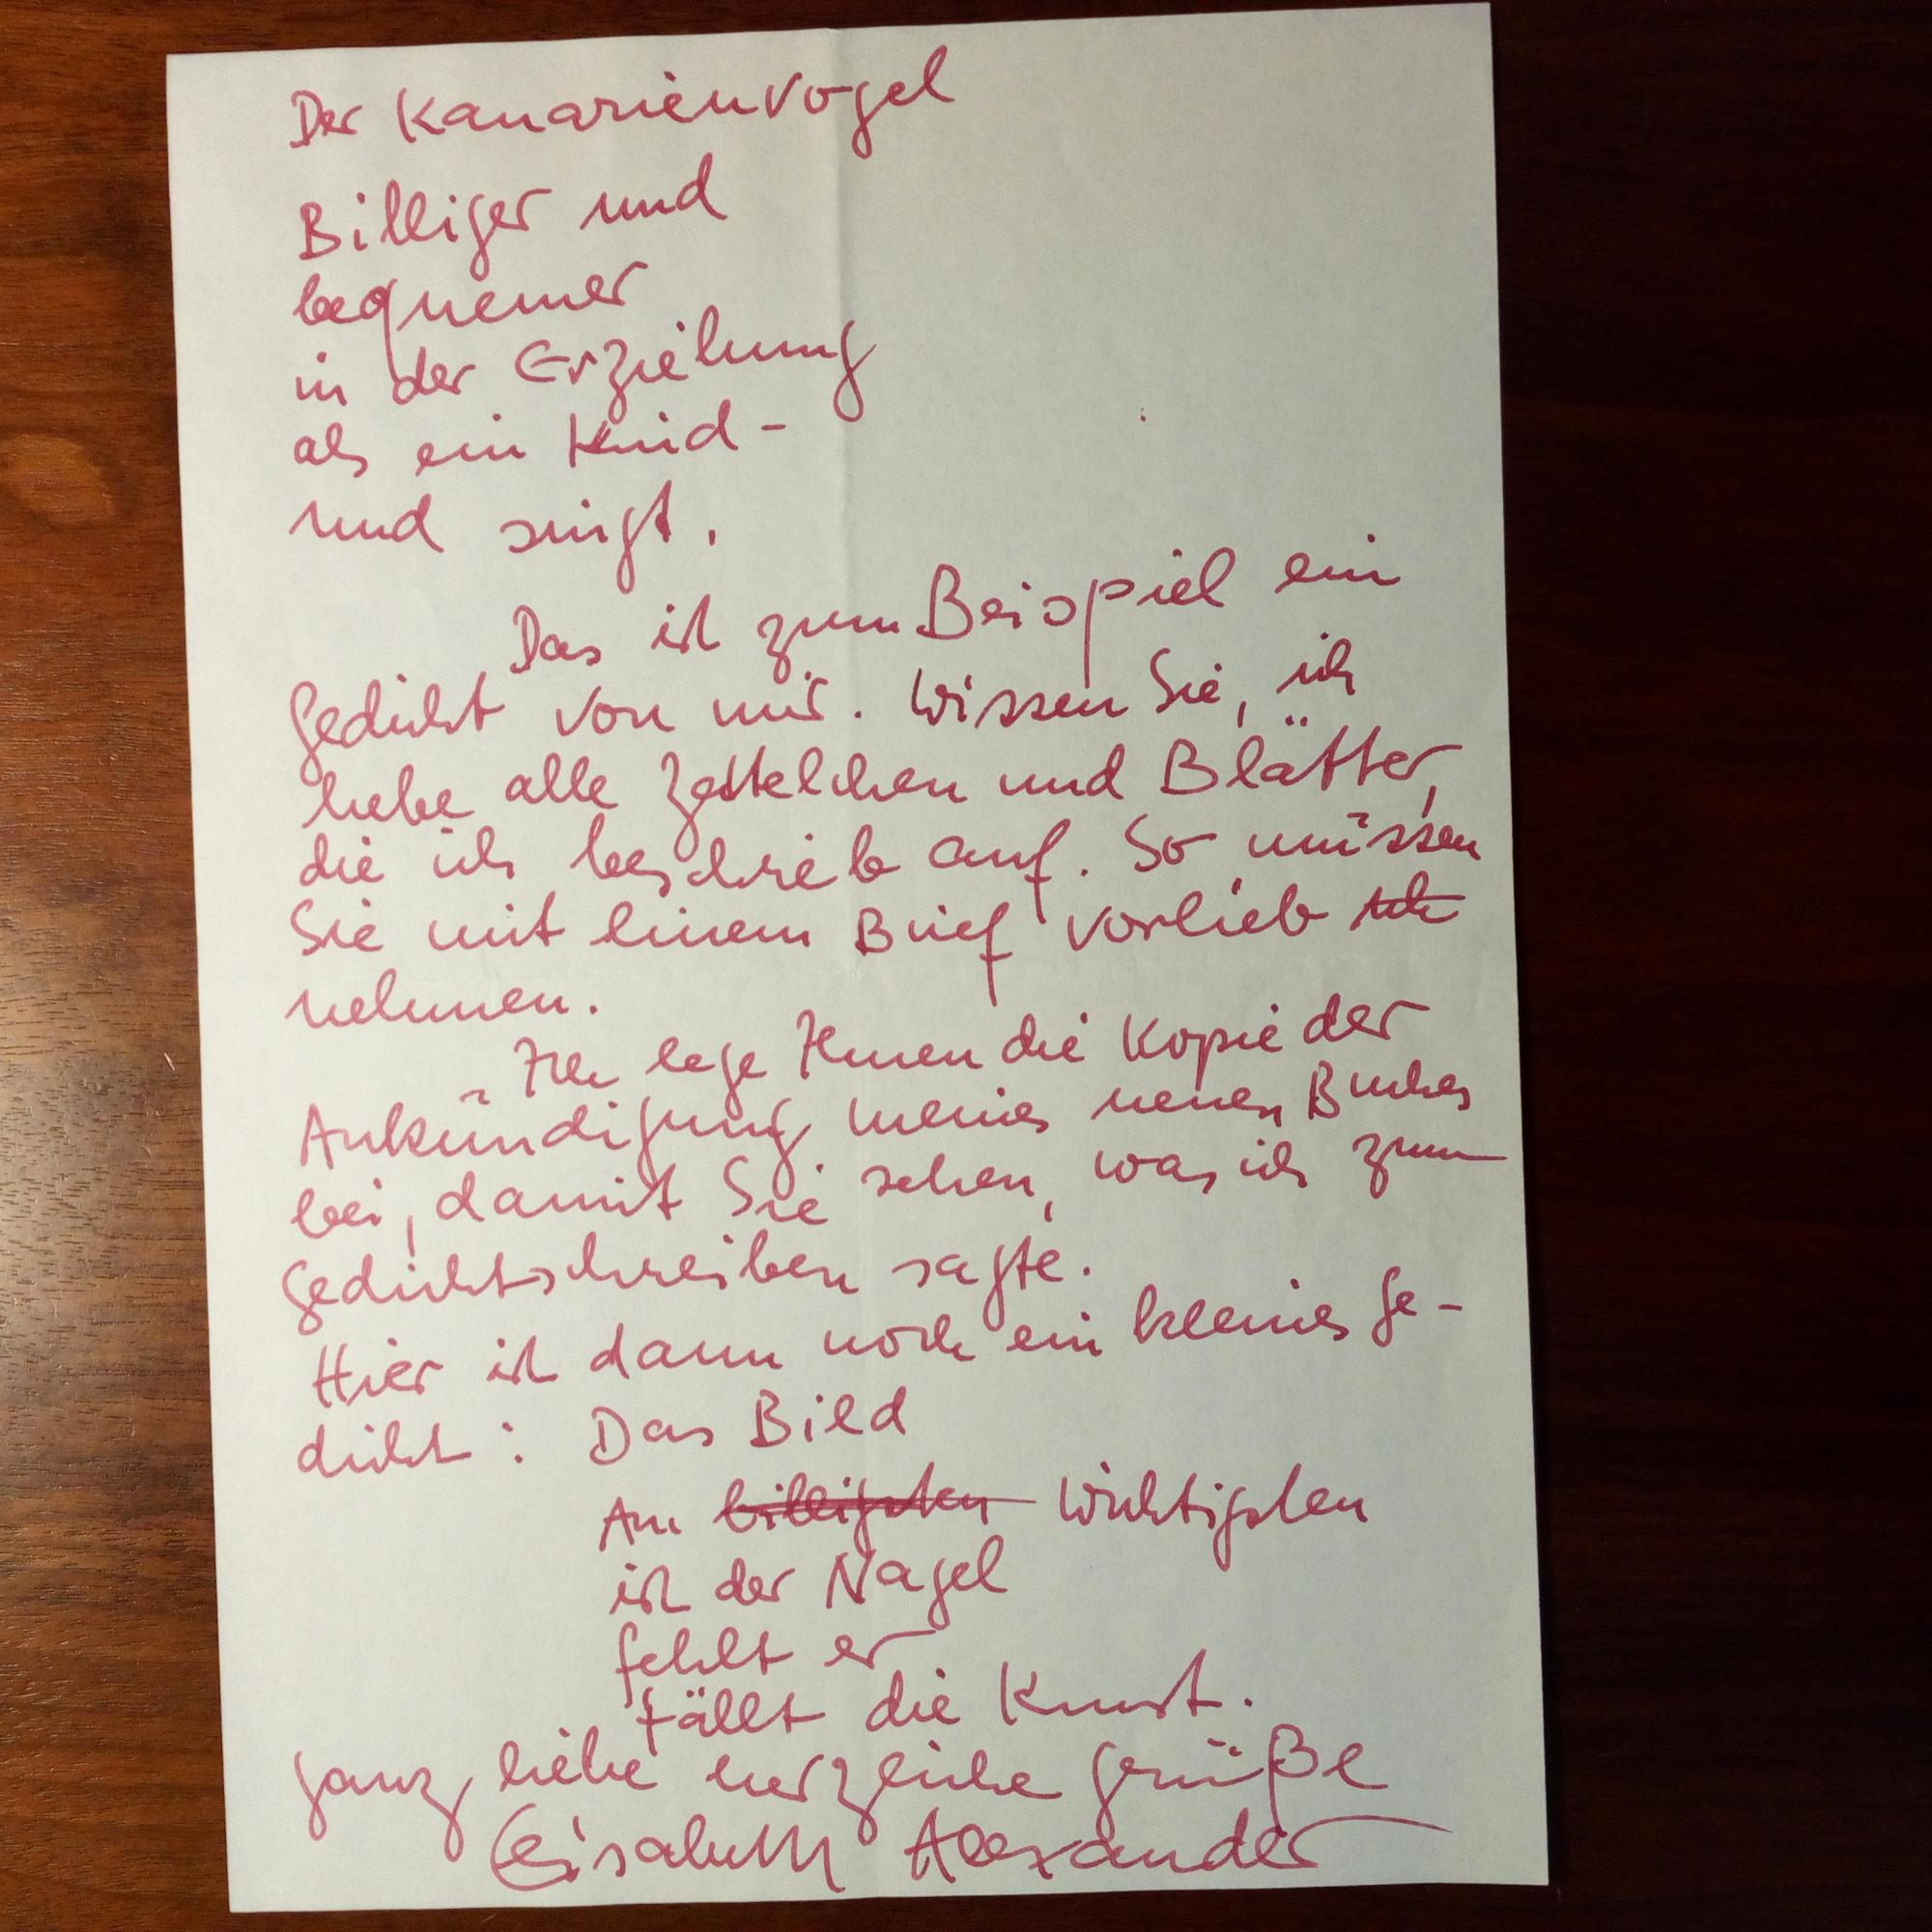 Der Kanarienvogel
Billiger und
bequemer
in der Erziehung
als ein Kind -
und singt.
Das ist zum Beispiel ein
Gedicht von mir. Wissen Sie, ich
hebe alle Zettelchen und Blätter,
die ich beschrieb auf. So müssen
Sie mit einem Brief vorlieb
nehmen.
Ich lege Ihnen die Kopie der
Ankündigung meines neuen Buches
bei, damit Sie sehen, was ich zum
Gedichtschreiben sagte.
Hier ist dann noch ein kleines Ge-
dicht: Das Bild
Am billigsten Wichtigsten
ist der Nagel
fehlt er
fällt die Kunst.
Ganz liebe herzliche Grüße
Elisabeth Alexander